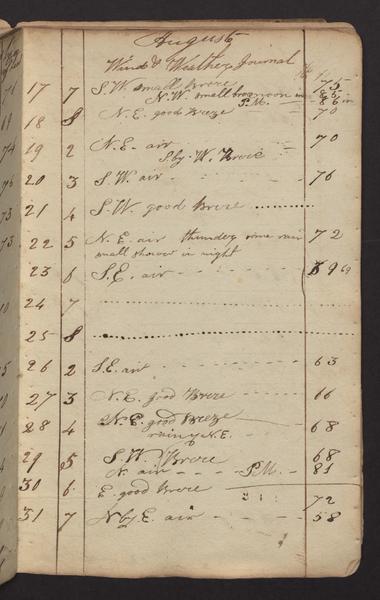 August
Wind & Weather Journal
17 7 S.W small Breze 75
N.W. small
P.M. 86
18 8 N.E. good Breze 70
19 2 N.E. air 70
S by W. Breze
20 3 S.W air 76
21 4 S.W. good Breze
22 5 N.E air thunder some rain 72
small shower in night
23 6 S.E. air 69
24 7
25 8
26 2 S.E. air 63
27 3 N.E. good Breze 66
28 4 N.E. good Breeze 68
rainy N.E.
29 5 S.W. Breze 68
N. air P.M. 81
30 6 E. good Breze 72
31 7 N by E. air 58